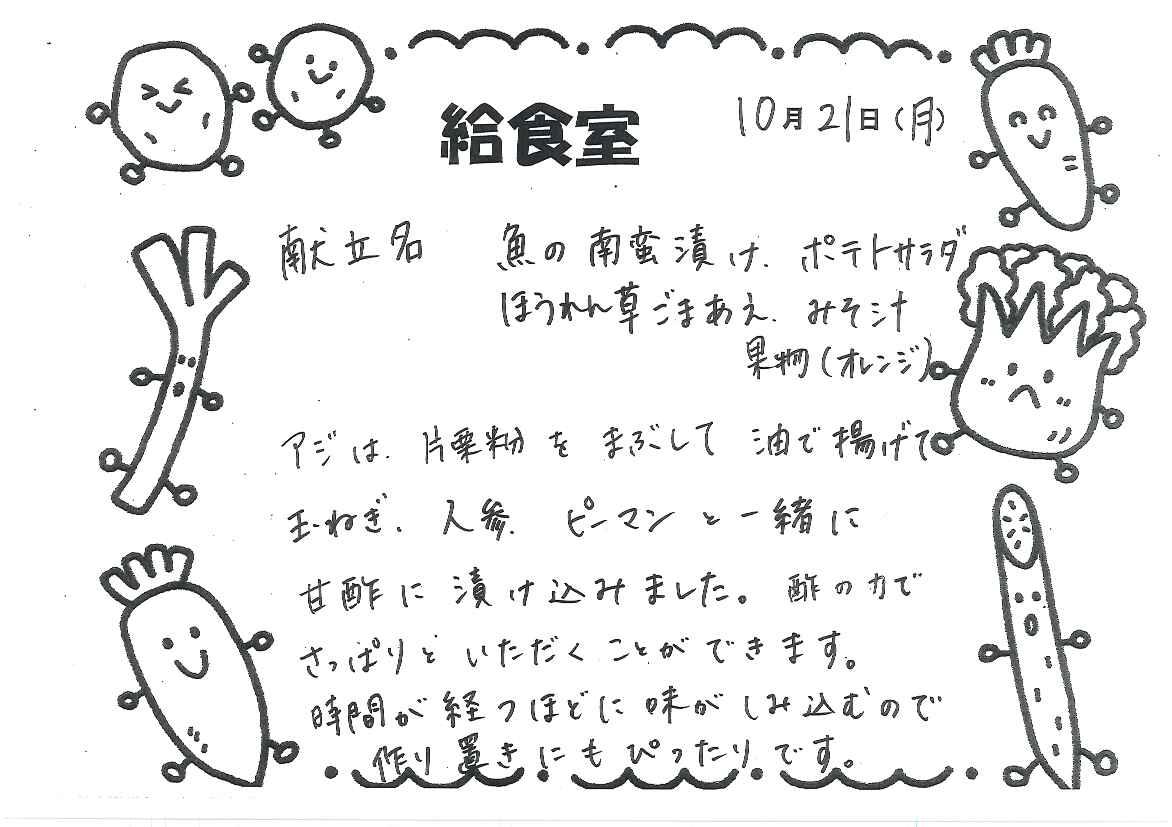 給食室
10月21日(月)
献立名 魚の南蛮漬け、ポテトサラダ
ほうれん草ごまあえ、みそ汁
果物(オレンジ)
アジは、片栗粉をまぶして油で揚げて
玉ねぎ、人参、ピーマンと一緒に
甘酢に漬け込みました。酢の力で
さっぱりといただくことができます。
時間が経つほどに味がしみ込むので
作り置きにもぴったりです。